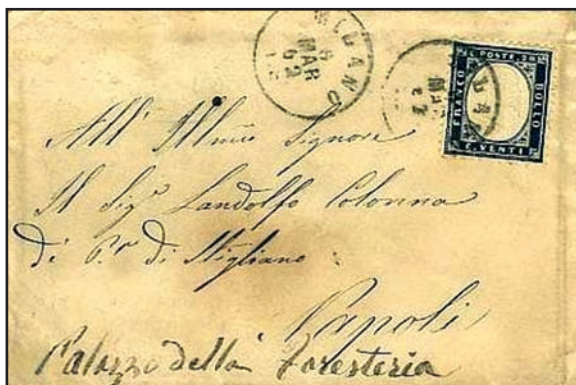 MILANO
6
MAR
62
C. POSTE. 20
FRANCO
BOLLO
C. VENTI
MAR
All' Illmo Signore
Il Sigr Landolfo Colonna
di Pr di Stigliano
Napoli
Palazzo della Foresteria